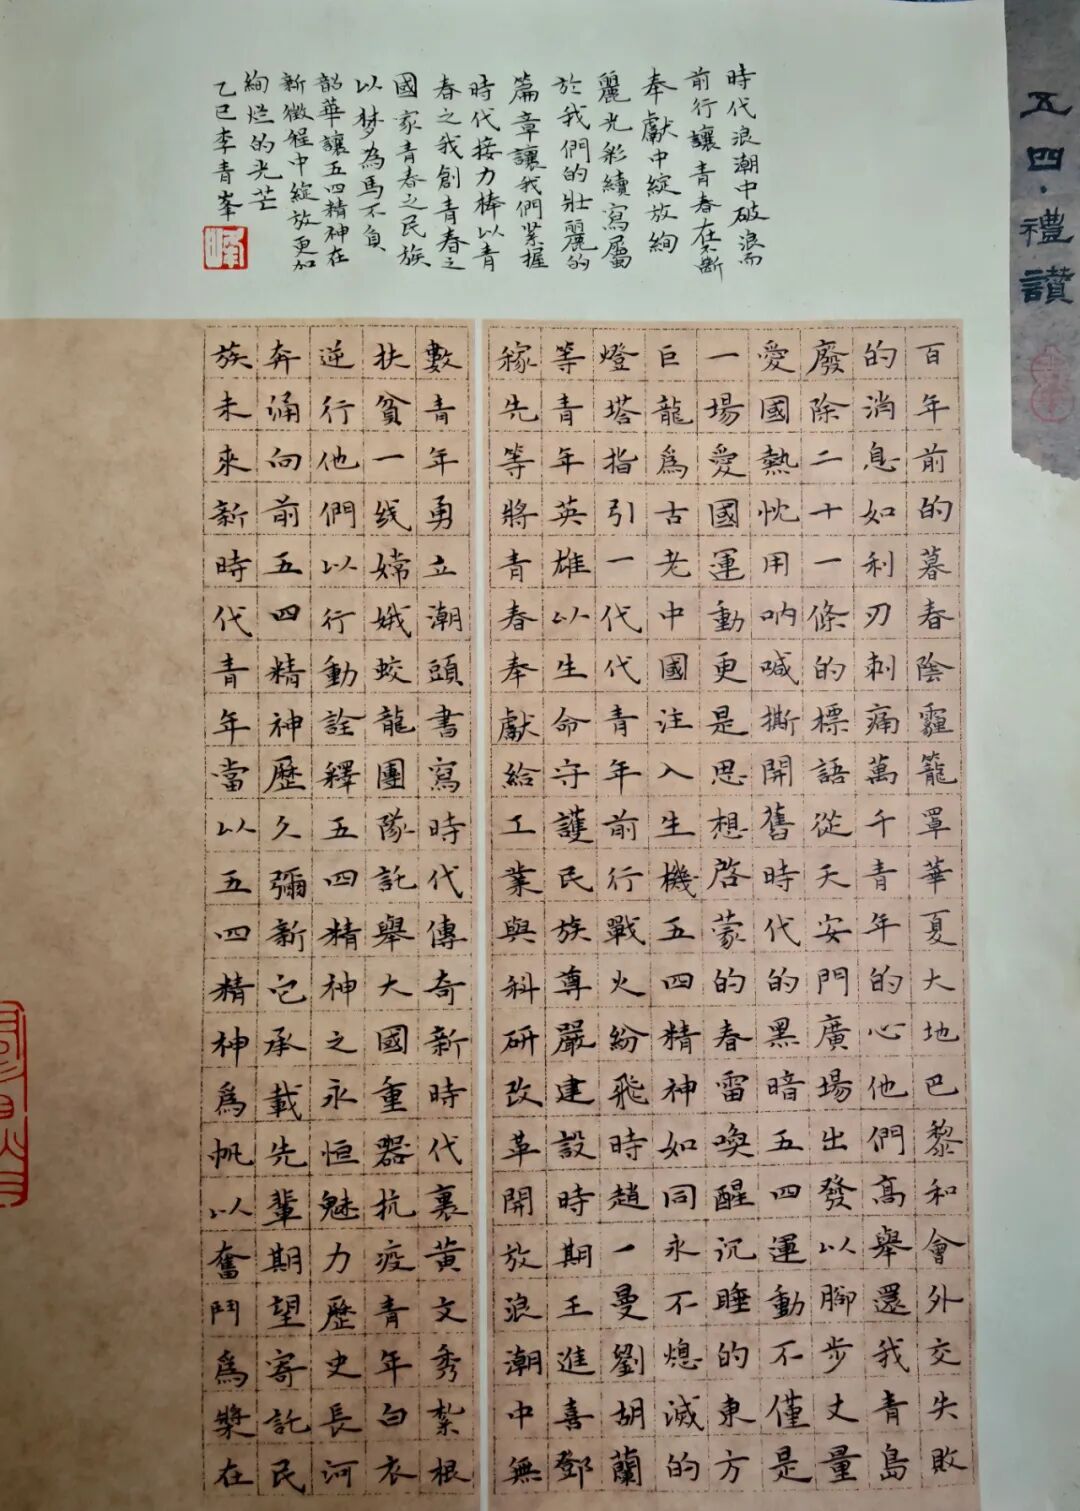 五四·禮讚
百年前的暮春陰霾籠罩華夏大地巴黎和會外交失敗
的消息如利刃刺痛萬千青年的心他們高舉還我青島
廢除二十一條的標語從天安門廣場出發以腳步丈量
愛國熱忱用吶喊撕開舊時代的黑暗五四運動不僅是
一場愛國運動更是思想啓蒙的春雷喚醒沉睡的東方
巨龍爲古老中國注入生機五四精神如同永不熄滅的
燈塔指引一代代青年前行戰火紛飛時趙一曼劉胡蘭
等青年英雄以生命守護民族尊嚴建設時期王進喜鄧
稼先等將青春奉獻給工業與科研改革開放浪潮中無
數青年勇立潮頭書寫時代傳奇新時代裏黄文秀紮根
扶貧一线嫦娥蛟龍團隊託舉大國重器抗疫青年白衣
逆行他們以行動詮釋五四精神之永恒魅力歷史長河
奔涌向前五四精神歷久彌新它承載先輩期望寄託民
族未來新時代青年當以五四精神爲帆以奮鬥爲槳在
時代浪潮中破浪而
前行讓青春在不斷
奉獻中綻放絢
麗光彩續寫屬
於我們的壯麗的
篇章讓我們緊握
時代接力棒以青
春之我創青春之
國家青春之民族
以梦為馬不負
韶華讓五四精神在
新徵程中綻放更加
絢烂的光芒
乙巳李青峯